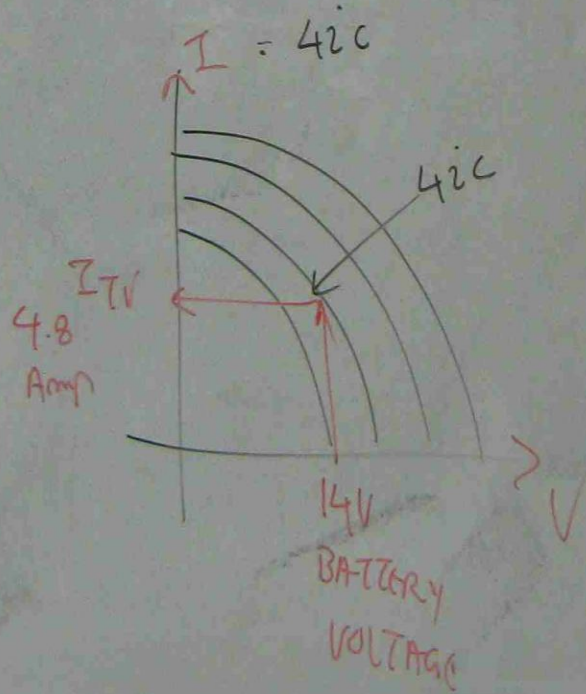 I = 42c
42c
ITV
4.8
Amp
14V
BATTERY
VOLTAGE
V